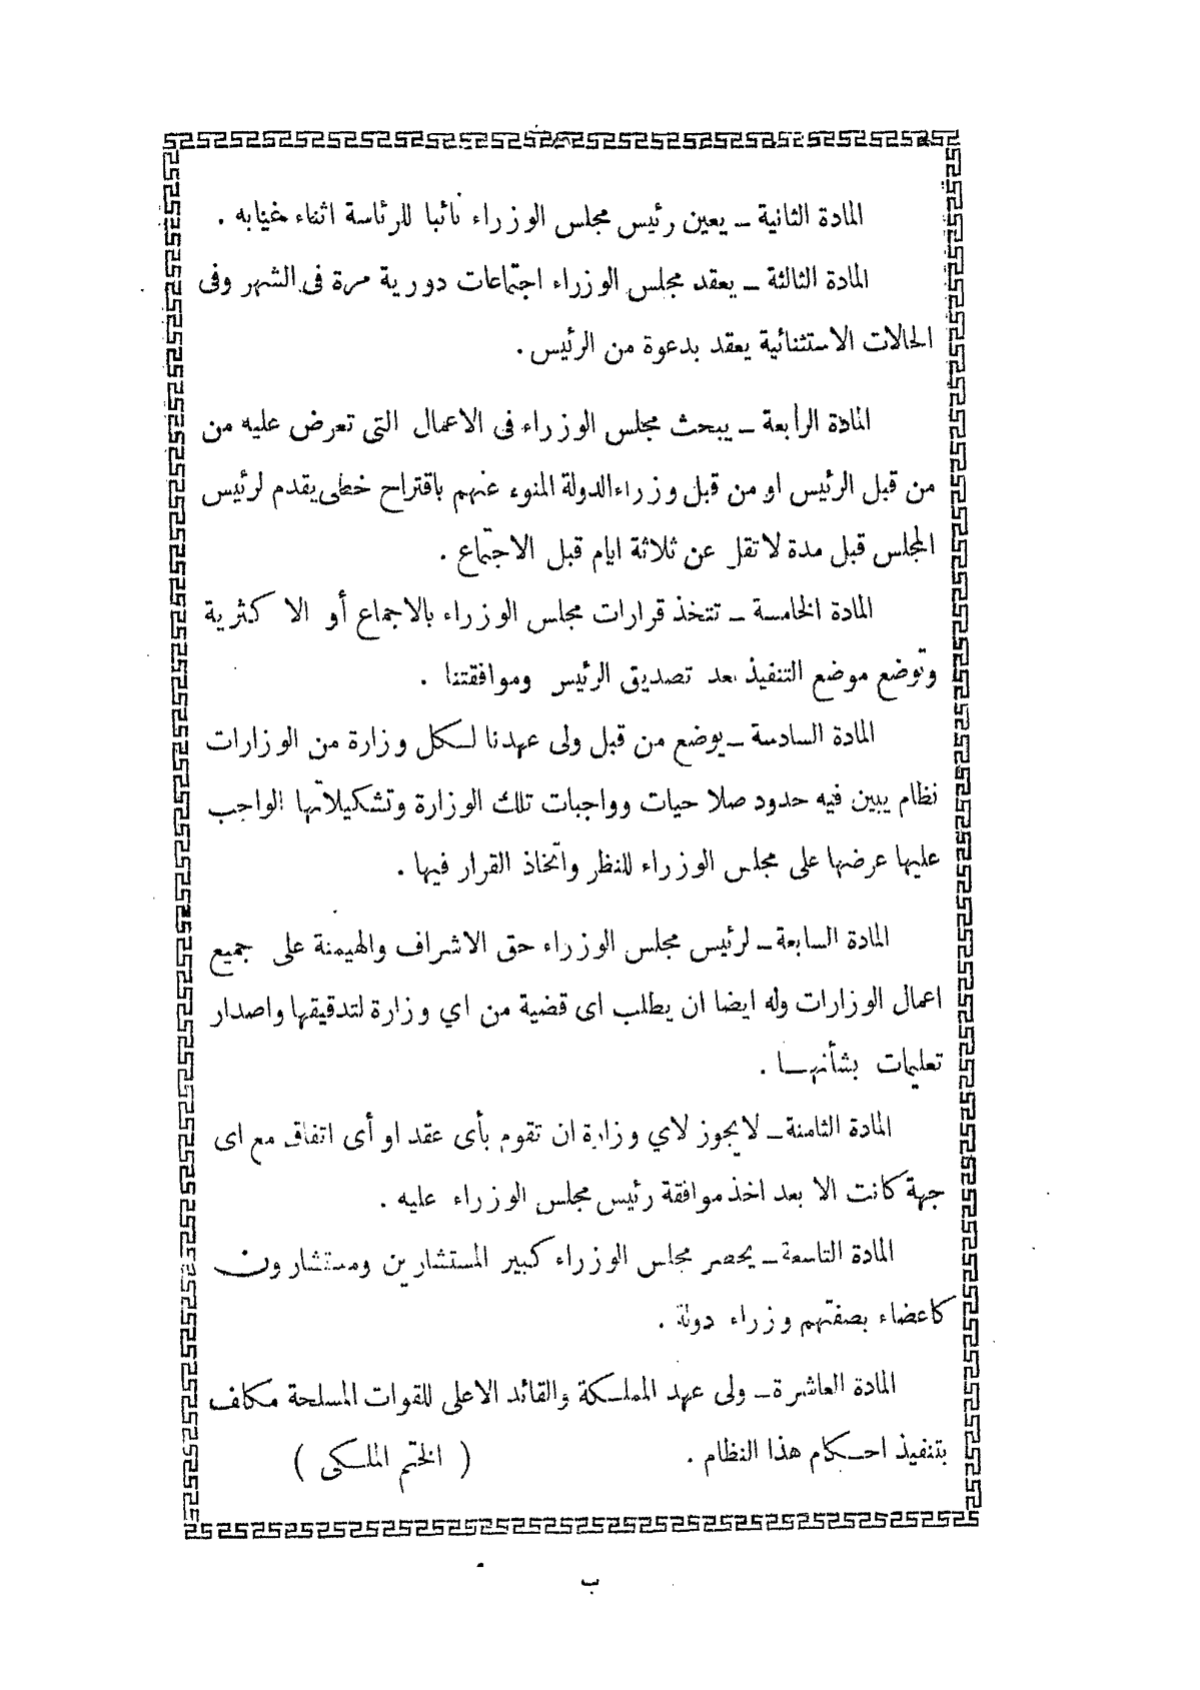 المادة الثانية ــ يعين رئيس مجلس الوزراء نائبا للرئاسة اثناء غيابه .
المادة الثالثة ــ يعقد مجلس الوزراء اجتماعات دورية مرة فى الشهر وفى
الحالات الاستثنائية يعقد بدعوة من الرئيس .
المادة الرابعة ــ يبحث مجلس الوزراء فى الاعمال التى تعرض عليه من
من قبل الرئيس او من قبل وزراء الدولة المنوء عنهم باقتراح خطى يقدم لرئيس
المجلس قبل مدة لاتقل عن ثلاثة ايام قبل الاجتماع .
المادة الخامسة ــ تتخذ قرارات مجلس الوزراء بالاجماع أو الا كثرية
وتوضع موضع التنفيذ بعد تصديق الرئيس وموافقتنا .
المادة السادسة ــ يوضع من قبل ولى عهدنا لـكل وزارة من الوزارات
نظام يبين فيه حدود صلا حيات وواجبات تلك الوزارة وتشكيلاتها الواجب
عليها عرضها على مجلس الوزراء للنظر واتخاذ القرار فيها .
المادة السابعة ــ لرئيس مجلس الوزراء حق الاشراف والهيمنة على جميع
اعمال الوزارات وله ايضا ان يطلب اى قضية من اي وزارة لتدقيقها واصدار
تعليمات بشأنهـا .
المادة الثامنة ــ لايجوز لاي وزارة ان تقوم بأى عقد او أى اتفاق مع اى
جهة كانت الا بعد اخذ موافقة رئيس مجلس الوزراء عليه .
المادة التاسعة ــ يحضر مجلس الوزراء كبير المستشارين ومستشارون
كاعضاء بصفتهم وزراء دولة .
المادة العاشرة ــ ولى عهد المملـكة والقائد الاعلى للقوات المسلحة مكلف
بتنفيذ احـكام هذا النظام . ( الختم الملـكى )
ب